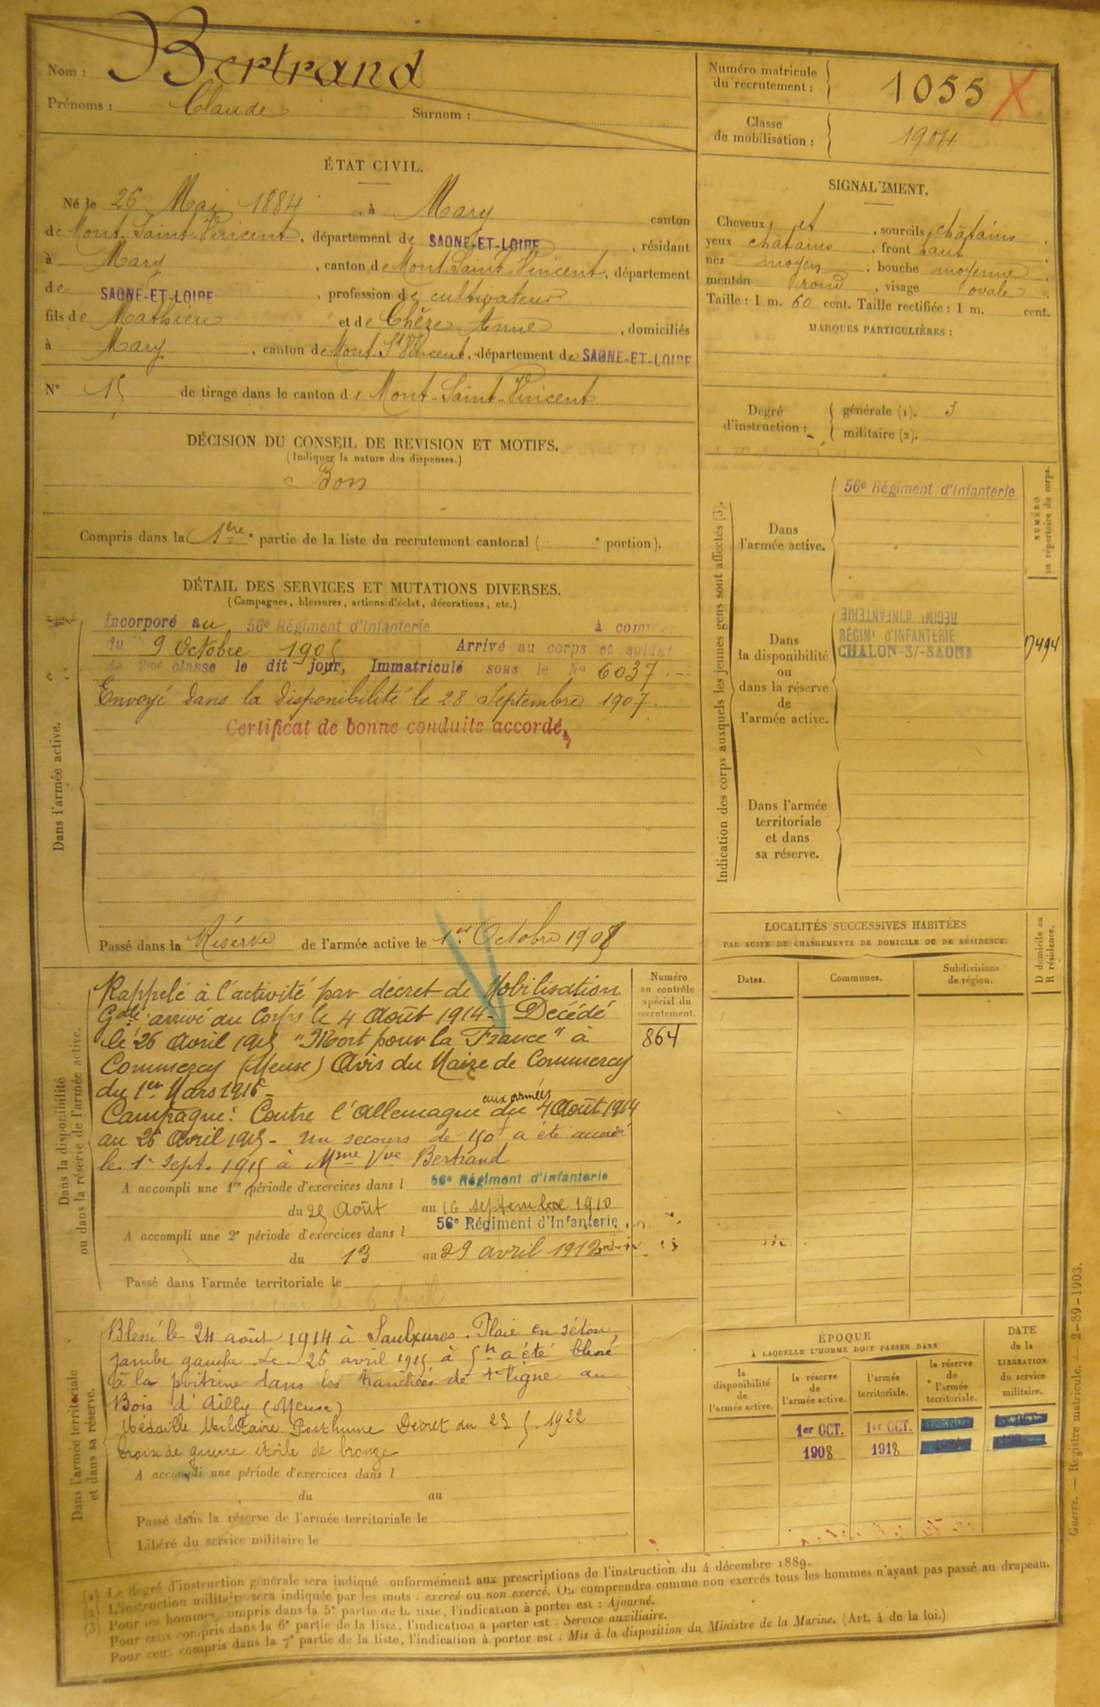 Nom : Bertrand
Prénoms : Claude Surnom :
Numéro matricule du recrutement : 1055
Classe de mobilisation : 1904
ÉTAT CIVIL.
Né le 26 Mai 1884, à Mary canton
de Mont Saint Vincent, département de SAONE-ET-LOIRE, résidant
à Mary, canton de Mont Saint Vincent, département
de SAONE-ET-LOIRE, profession de cultivateur
fils de Mathieu et de Chèze Anne, domiciliés
à Mary, canton de Mont St Vincent, département de SAONE-ET-LOIRE
N° 15 de tirage dans le canton d Mont-Saint-Vincent
SIGNALEMENT.
Cheveux et, sourcils châtains
yeux châtains, front haut
nez moyen, bouche moyenne
menton rond, visage ovale
Taille : 1 m. 60 cent. Taille rectifiée : 1 m. cent.
MARQUES PARTICULIÈRES :
Degré d'instruction : générale (1). 3
militaire (2).
DÉCISION DU CONSEIL DE REVISION ET MOTIFS.
(Indiquer la nature des dispenses.)
Bon
Compris dans la 1ère partie de la liste du recrutement cantonal ( portion).
DÉTAIL DES SERVICES ET MUTATIONS DIVERSES.
(Campagnes, blessures, actions d'éclat, décorations, etc.)
Dans l'armée active.
Incorporé au 56e Régiment d'Infanterie à compter
du 9 Octobre 1905 Arrivé au corps et soldat
de 2me classe le dit jour, Immatriculé sous le No 6037
Envoyé dans la disponibilité le 28 Septembre 1907.
Certificat de bonne conduite accordé
Passé dans la Réserve de l'armée active le 1er Octobre 1908
Indication des corps auxquels les jeunes gens sont affectés (3).
Dans l'armée active.
56e Régiment d'Infanterie
NUMÉRO au répertoire du corps.
Dans la disponibilité ou dans la réserve de l'armée active.
RÉGIMt D'INFANTERIE
RÉGIMt D'INFANTERIE
CHALON-S/-SAONE
Dans l'armée territoriale et dans sa réserve.
LOCALITÉS SUCCESSIVES HABITÉES
PAR SUITE DE CHANGEMENTS DE DOMICILE OU DE RÉSIDENCE.
Dates. Communes. Subdivisions de région. D domicile ou R résidence.
Dans la disponibilité ou dans la réserve de l'armée active.
Rappelé à l'activité par décret de Mobilisation
Gdle arrivé au Corps le 4 Août 1914 - Décédé
le 26 Avril 1915 "Mort pour la France" à
Commercy (Meuse) Avis du Maire de Commercy
du 1er Mars 1916 -
Campagne : Contre l'Allemagne aux armées du 4 Août 1914
au 26 Avril 1915 - Un secours de 150f a été accordé
le 1er Sept. 1915 à Mme Vve Bertrand
Numéro au contrôle spécial du recrutement.
864
A accompli une 1re période d'exercices dans l 56e Régiment d'Infanterie
du 25 Août au 16 septembre 1910
A accompli une 2e période d'exercices dans l 56e Régiment d'Infanterie
du 13 au 29 avril 1912
Passé dans l'armée territoriale le
Dans l'armée territoriale et dans sa réserve.
Blessé le 24 août 1914 à Saulxures. Plaie en séton,
jambe gauche. Le 26 avril 1915, à 5h a été blessé
à la poitrine dans les tranchées de 1ère ligne au
Bois d'Ailly (Meuse)
Médaille Militaire Posthume Décret du 23 5. 1922
Croix de guerre étoile de bronze
A accompli une période d'exercices dans l
du au
Passé dans la réserve de l'armée territoriale le
Libéré du service militaire le
ÉPOQUE
À LAQUELLE L'HOMME DOIT PASSER DANS
DATE de la LIBÉRATION du service militaire.
la disponibilité de l'armée active. la réserve de l'armée active. l'armée territoriale. la réserve de l'armée territoriale.
1er OCT. 1er OCT.
1908 1918
(1) Le degré d'instruction générale sera indiqué conformément aux prescriptions de l'instruction du 4 décembre 1889.
(2) L'instruction militaire sera indiquée par les mots : exercé ou non exercé. On comprendra comme non exercés tous les hommes n'ayant pas passé au drapeau.
(3) Pour les hommes compris dans la 5e partie de la liste, l'indication à porter est : Ajourné.
Pour ceux compris dans la 6e partie de la liste, l'indication à porter est : Service auxiliaire.
Pour ceux compris dans la 7e partie de la liste, l'indication à porter est : Mis à la disposition du Ministre de la Marine. (Art. 4 de la loi.)
Guerre. — Registre matricule. — 2-89-1903.